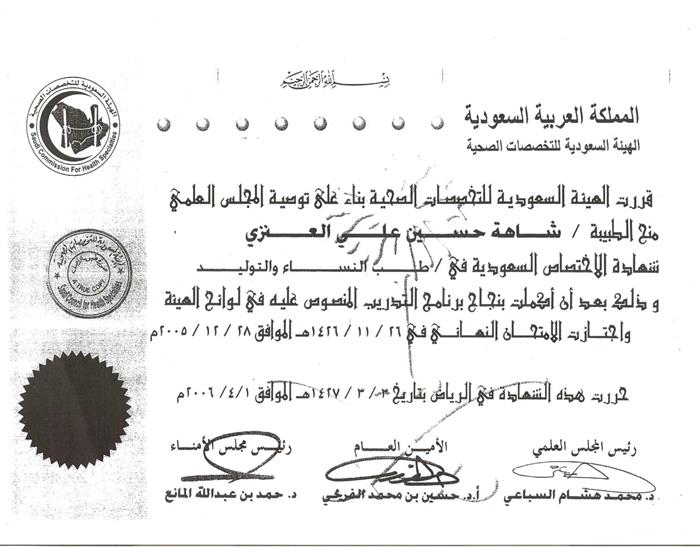 بسم الله الرحمن الرحيم
المملكة العربية السعودية
الهيئة السعودية للتخصصات الصحية
الهيئة السعودية للتخصصات الصحية
Saudi Commission For Health Specialties
قررت الهيئة السعودية للتخصصات الصحية بناء على توصية المجلس العلمي
منح الطبيبة / شاهة حسين علي العنزي
شهادة الاختصاص السعودية في / طب النساء والتوليد
و ذلك بعد أن أكملت بنجاح برنامج التدريب المنصوص عليه في لوائح الهيئة
واجتازت الامتحان النهائي في ٢٦ / ١١ / ١٤٢٦هـ الموافق ٢٨ / ١٢ / ٢٠٠٥م
TRUE COPY
Saudi Council for Health Specialties
حررت هذه الشهادة في الرياض بتاريخ ٣ / ٣ / ١٤٢٧هـ الموافق ٢٠٠٦/٤/١م
رئيس المجلس العلمي
الأمين العام
رئيس مجلس الأمناء
د. محمد هشام السباعي
أ.د. حسين بن محمد الفريحي
د. حمد بن عبدالله المانع